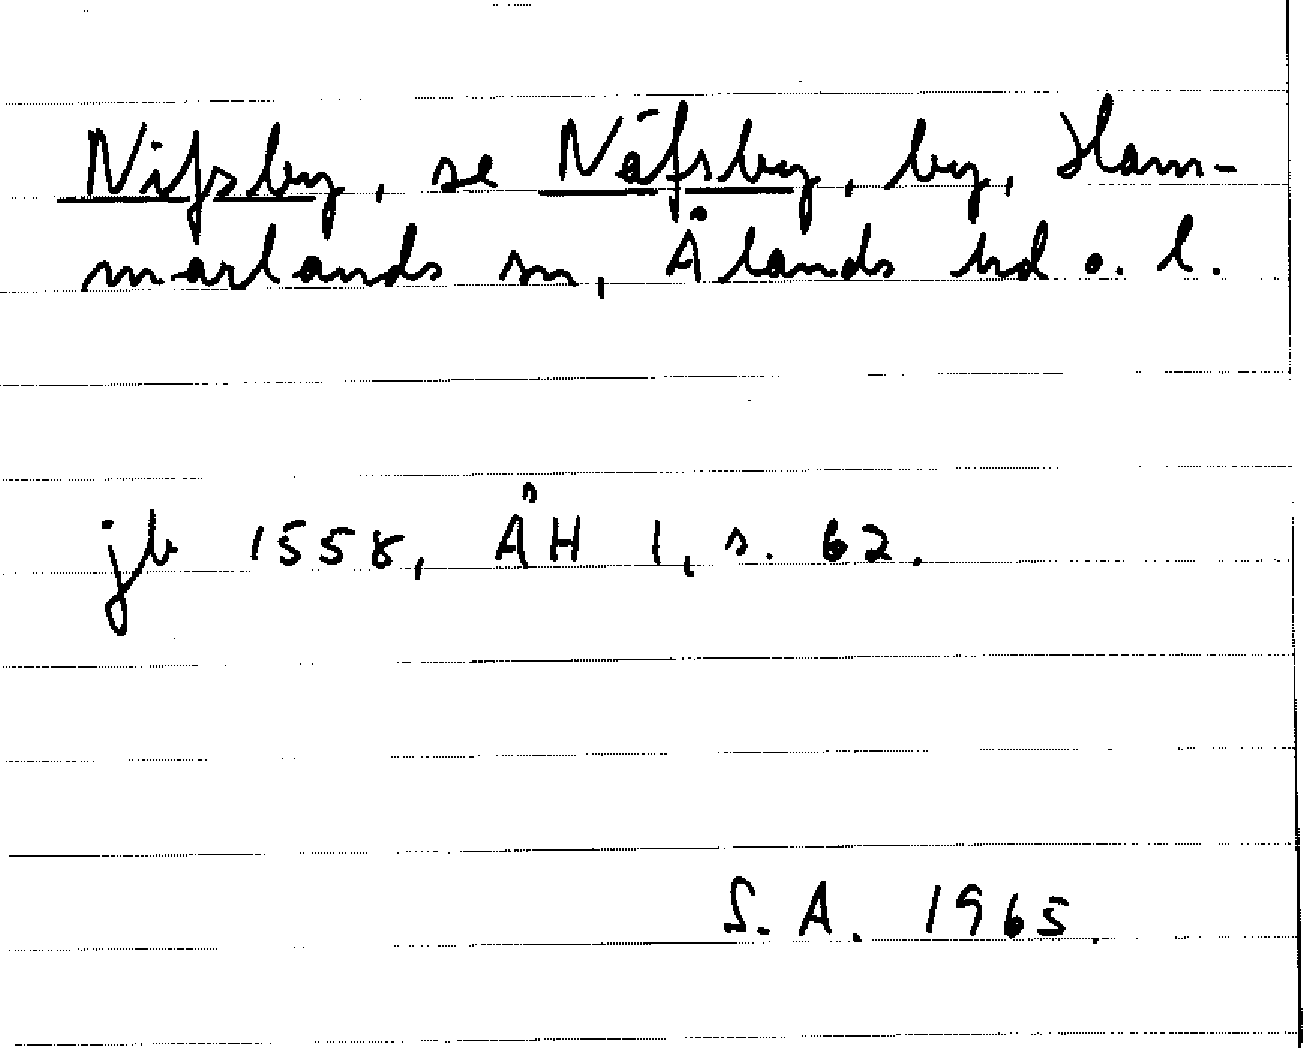 Nifsby, se Näfsby, by, Ham-
marlands sn, Ålands hd o. l.
jb 1558, ÅH 1, s. 62.
S.A. 1965.